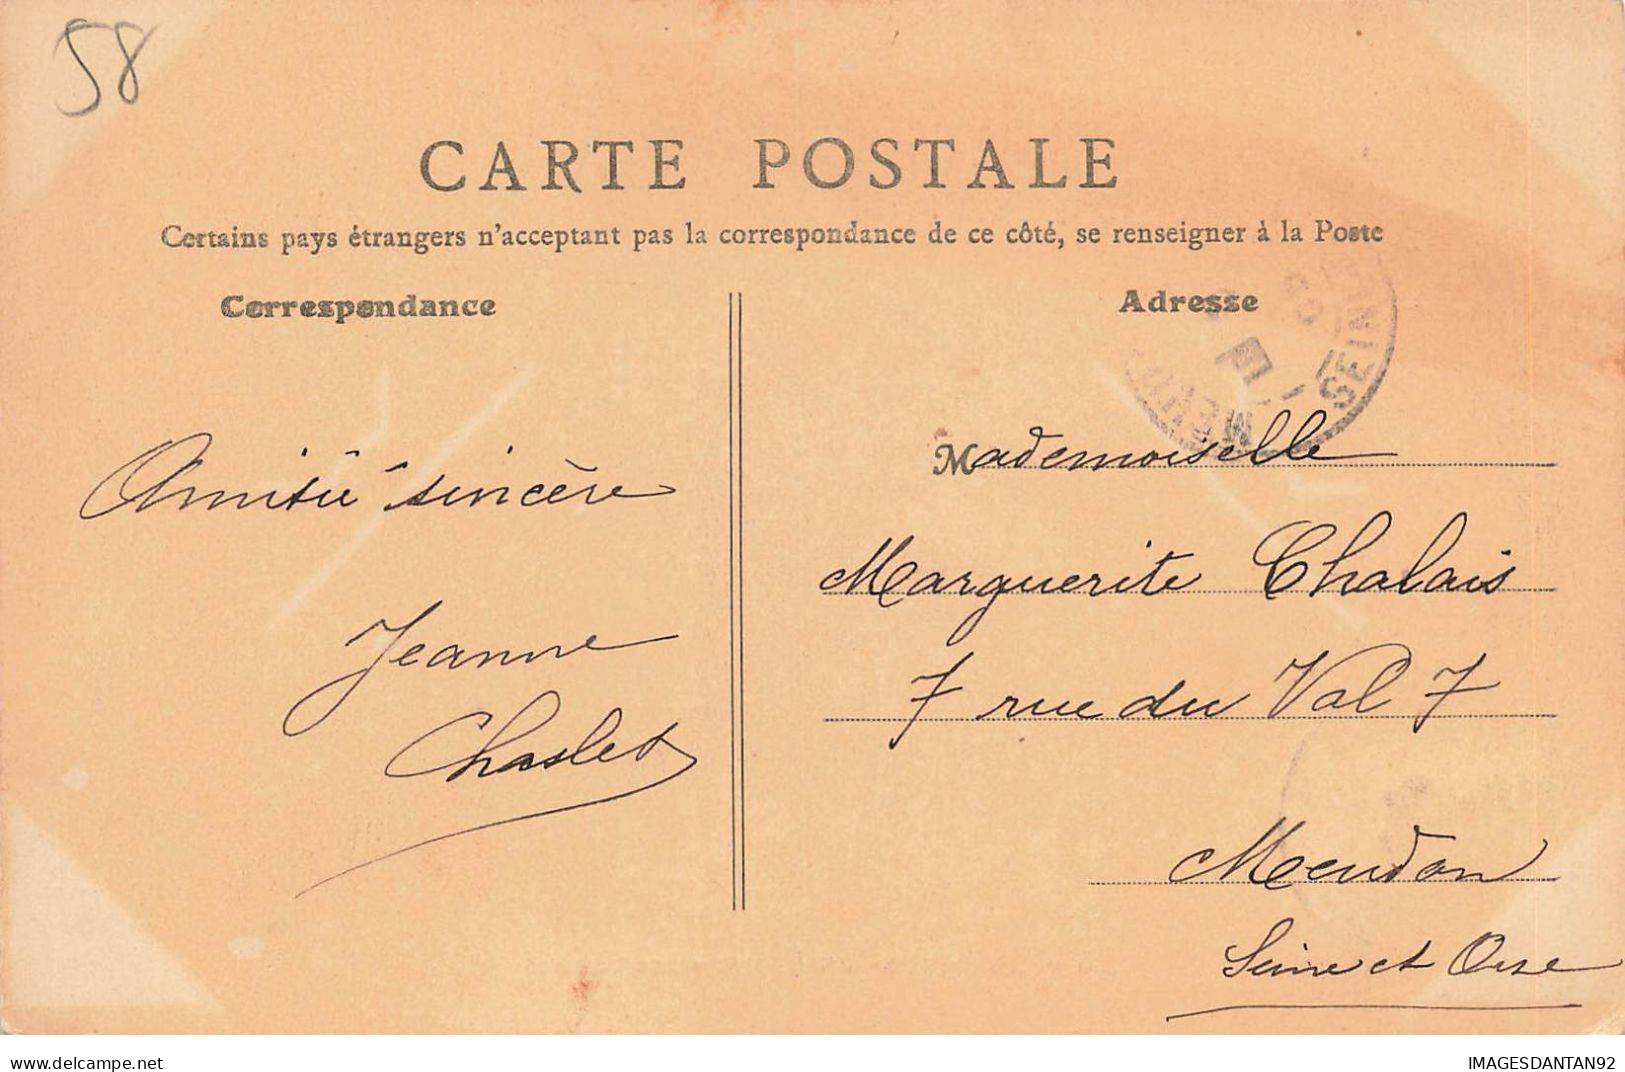 58
CARTE POSTALE
Certains pays étrangers n'acceptant pas la correspondance de ce côté, se renseigner à la Poste
Correspondance
Amitié sincère
Jeanne
Chaslet
Adresse
SEINE
Mademoiselle
Marguerite Chalais
7 rue du Val 7
Meudon
Seine et Oise
delcampe.net
IMAGESDANTAN92